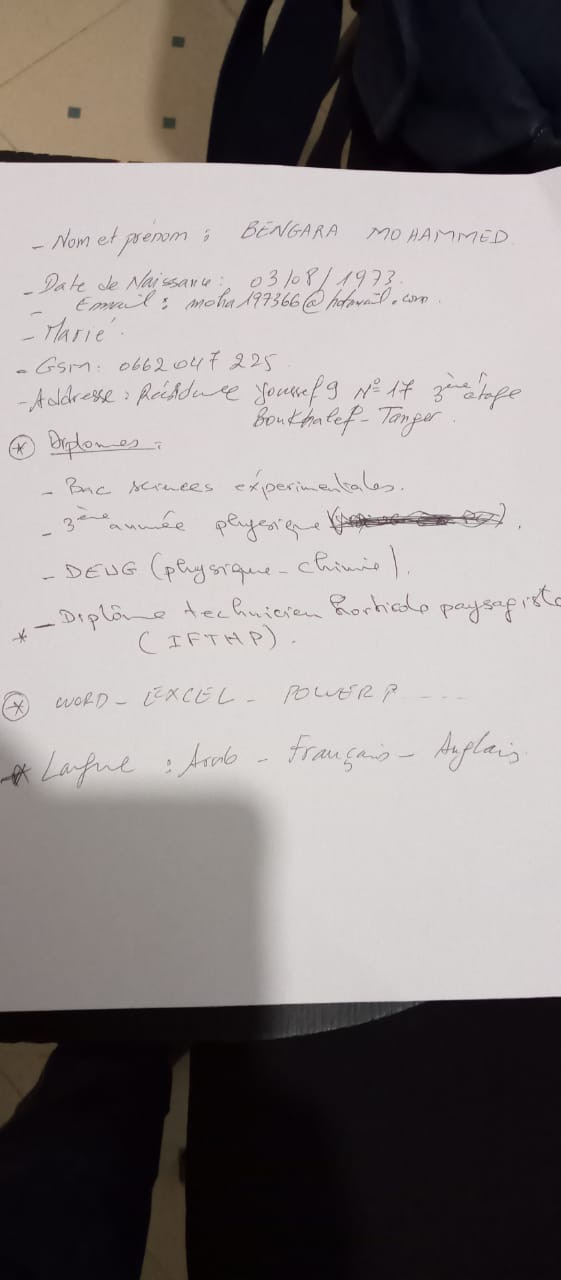 - Nom et prénom : BENGARA MOHAMMED
- Date de Naissance : 03/08/1973
- Email : moha197366@hotmail.com
- Marié
- Gsm : 0662 047 225
- Addresse : Résidence Youssef 9 N° 17 3ème étage
Boukhalef - Tanger
* Diplomes :
- Bac sciences expérimentales.
- 3ème année physique
- DEUG (physique - chimie).
* - Diplôme technicien horticole paysagiste
(IFTHP).
* WORD - EXCEL - POWER P ....
* Langue : Arab - Français - Anglais